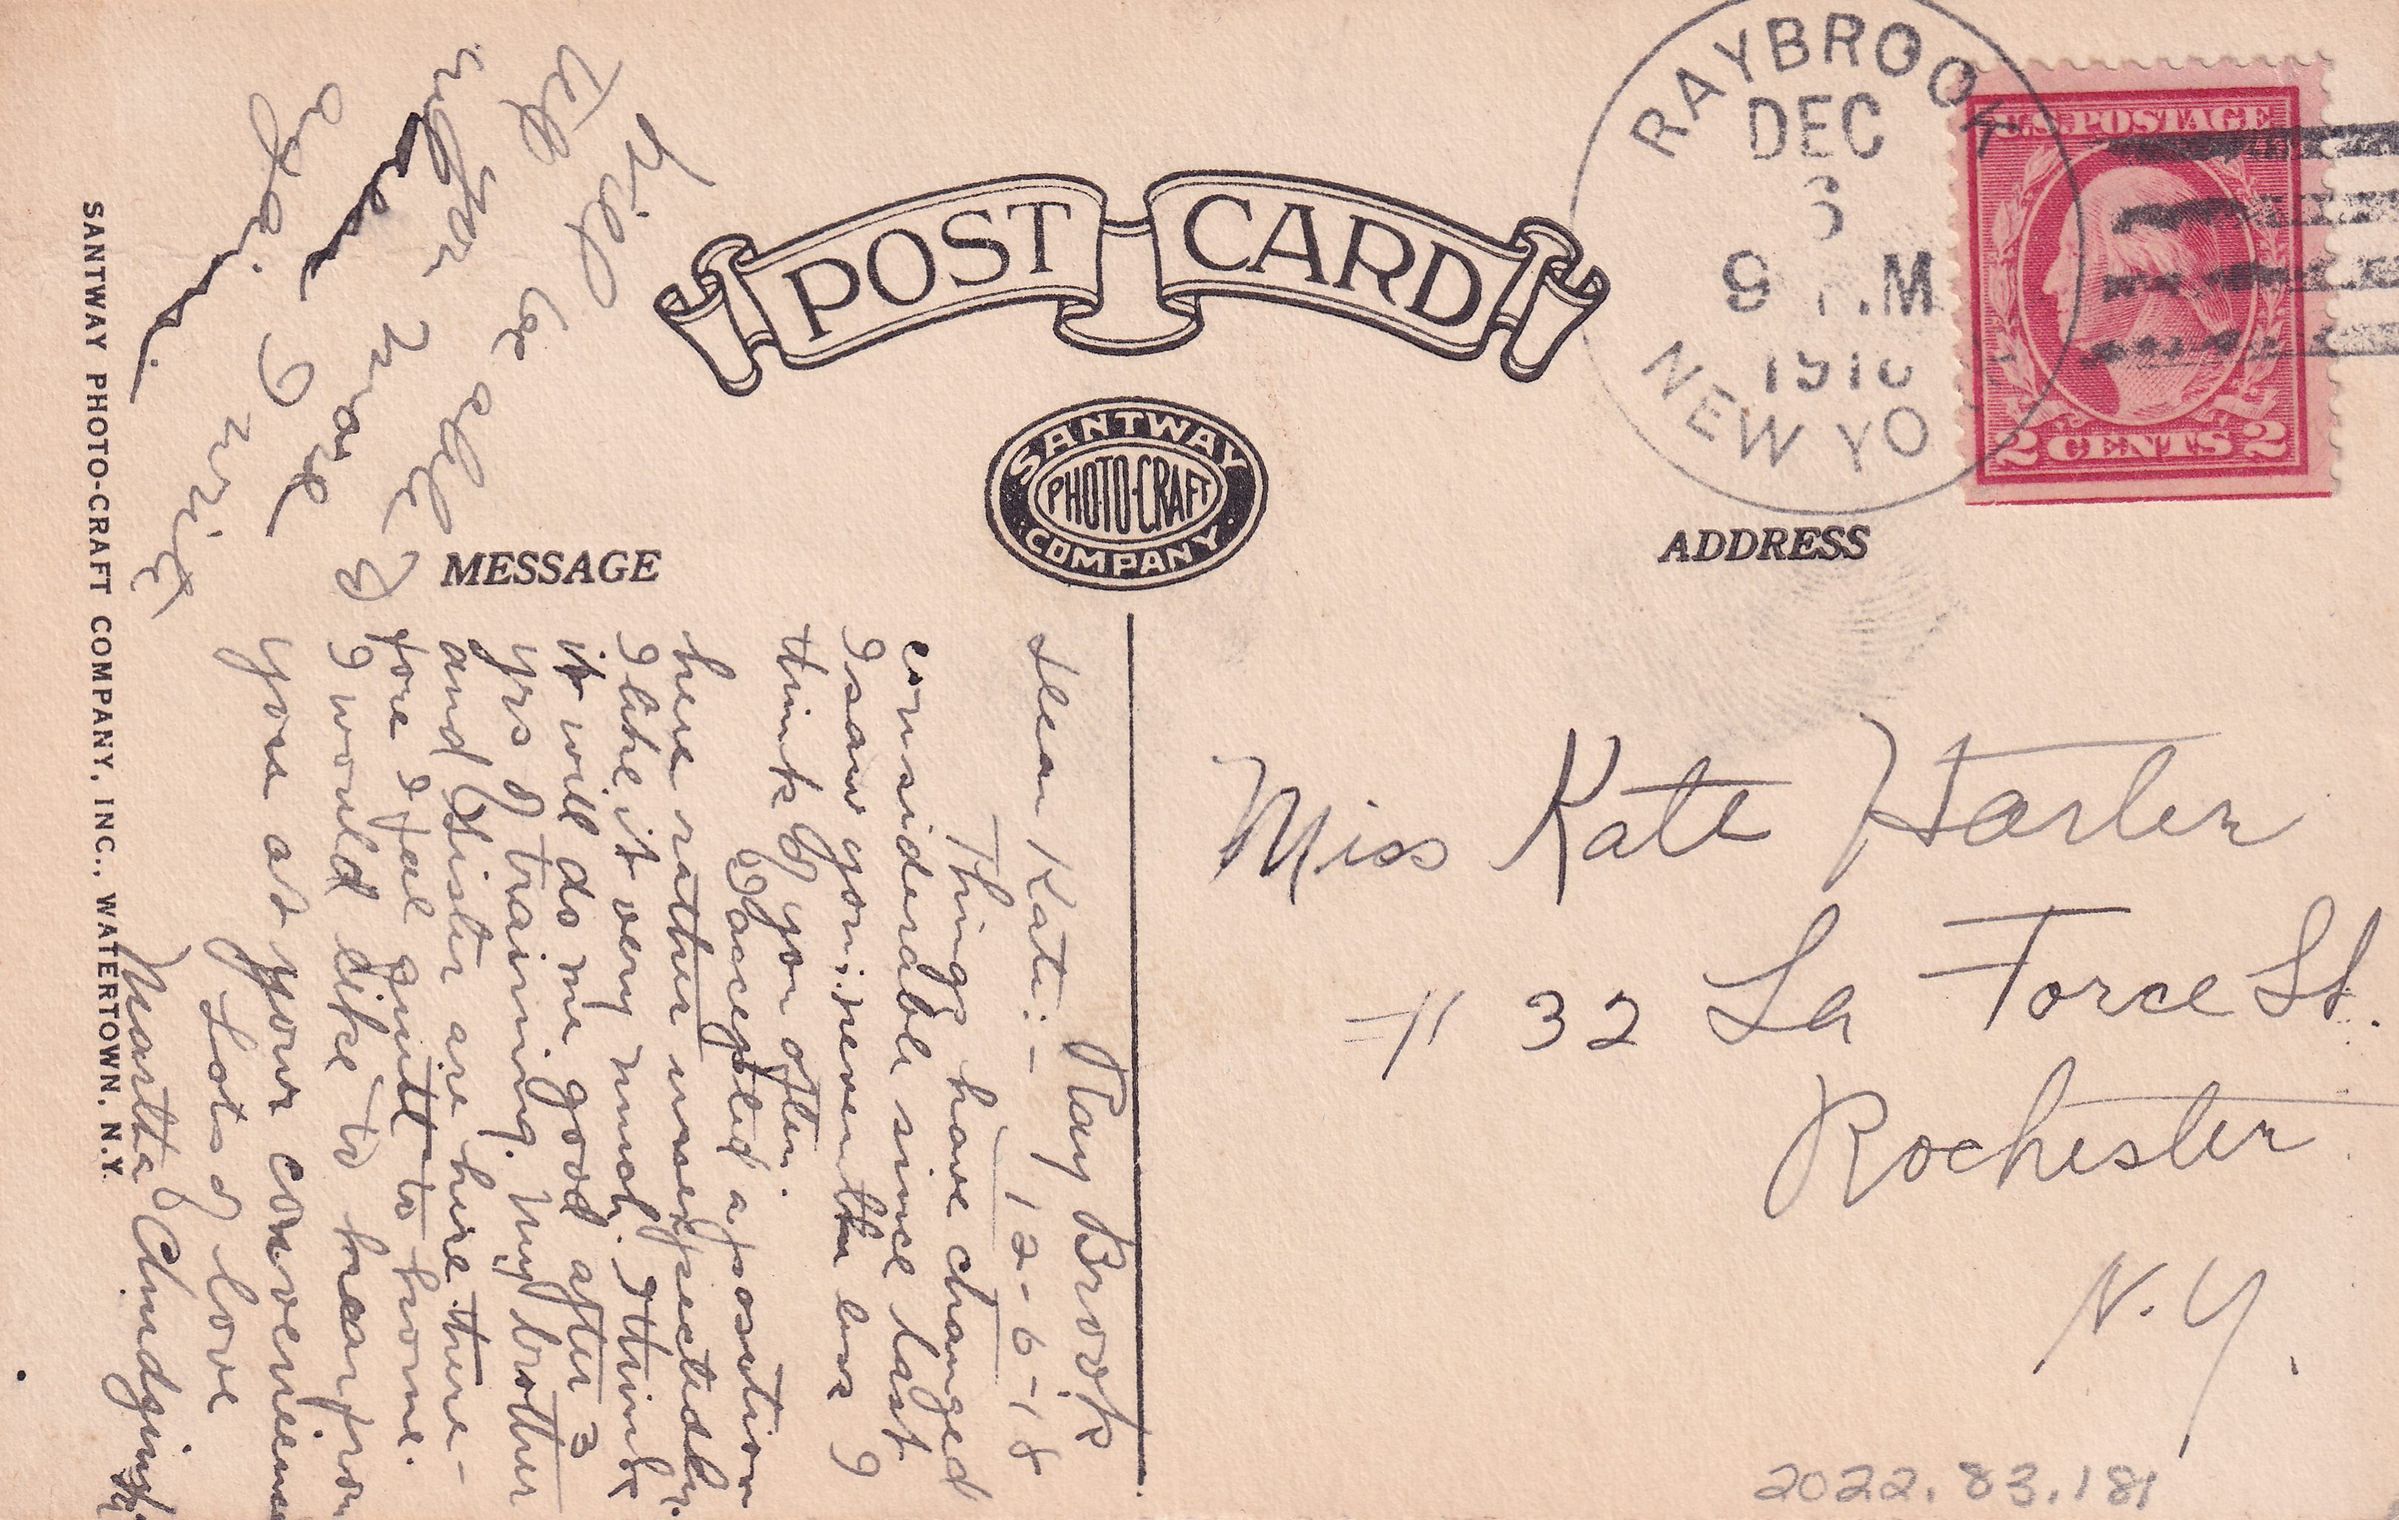 POST CARD
SANTWAY
PHOTO-CRAFT
COMPANY
MESSAGE
ADDRESS
RAYBROOK
DEC
6
9 M
NEW YO
U.S. POSTAGE
2 CENTS 2
Ray Brook
12-6-18
Dear Kate:-
Things have changed
considerable since last
I saw you; neverthe less I
think of you often.
I accepted a position
here rather unexpectedly.
I like it very much. I think
it will do me good after 3
yrs of training. My brother
and Sister are here there-
fore I feel quite to home.
I would like to hear from
you at your convenience
Lots of love
Martha
Miss Kate Harter
# 32 La Force St.
Rochester
N.Y.
2022.83.181
SANTWAY PHOTO-CRAFT COMPANY, INC., WATERTOWN, N.Y.